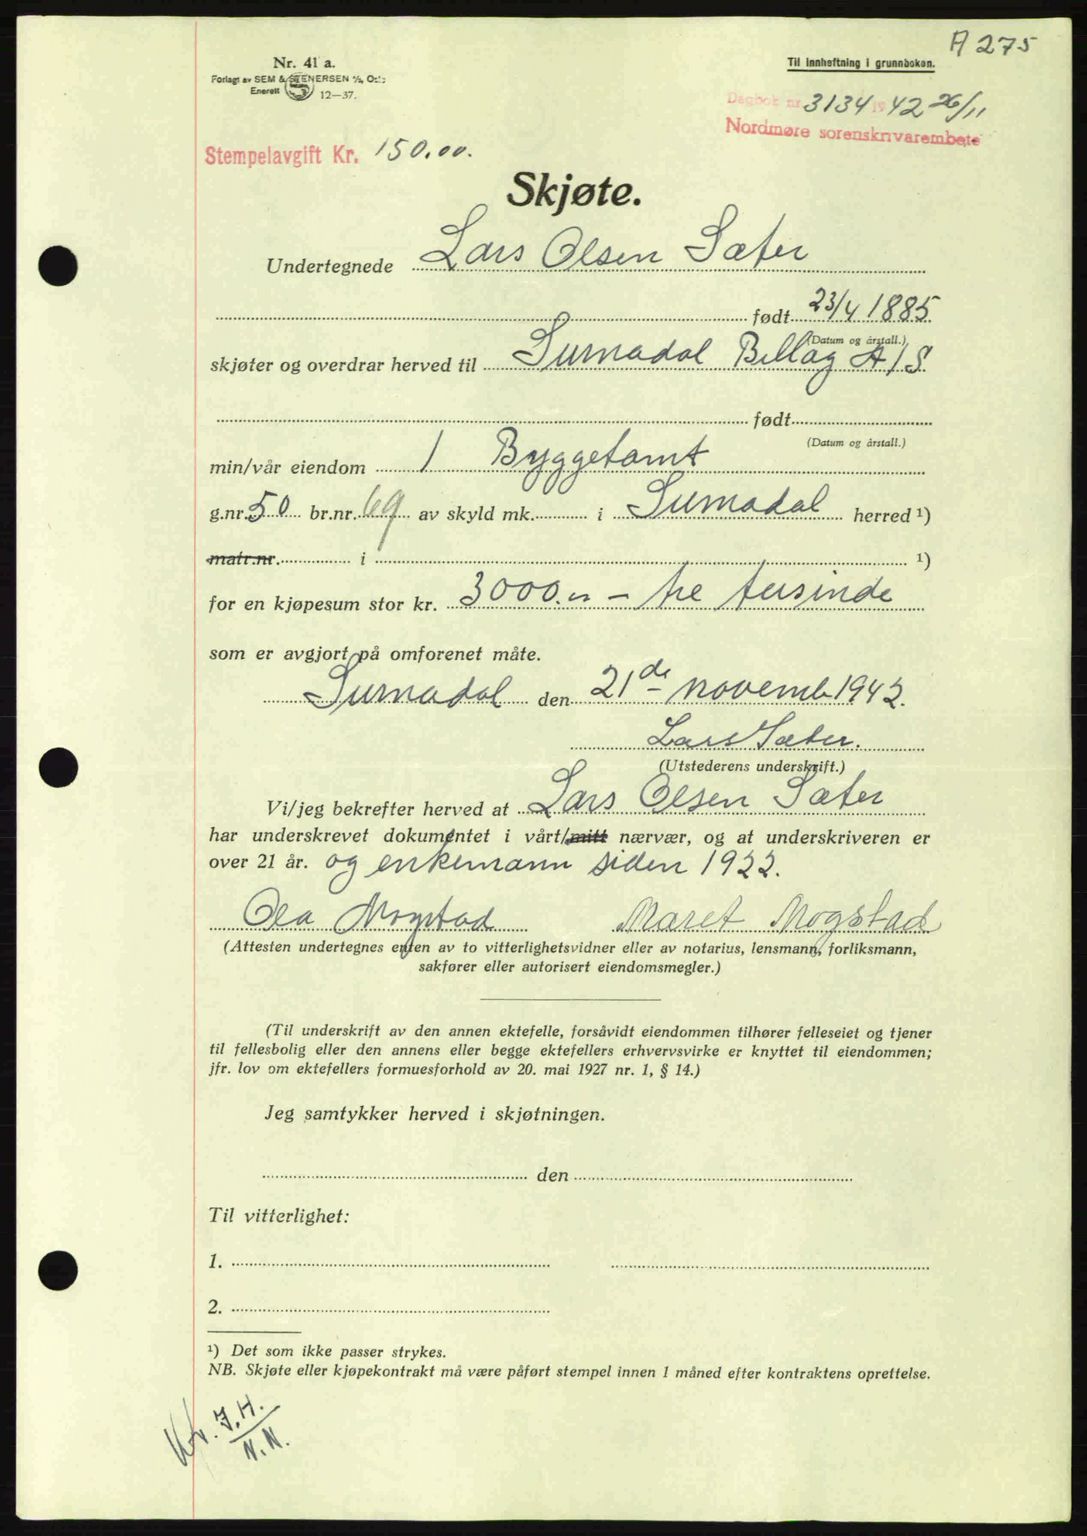 A 275
Nr. 41 a.
Forlagt av SEM & STENERSEN A/S, Oslo
Enerett 12—37.
Til innheftning i grunnboken.
Dagbok nr. 3134 1942 26/11
Nordmøre sorenskrivarembete
Stempelavgift Kr. 150.00.
Skjøte.
Undertegnede Lars Olsen Sæter
født 23/4 1885
(Datum og årstall.)
skjøter og overdrar herved til Surnadal Billag A/S
født
(Datum og årstall.)
min/vår eiendom 1 Byggetomt
g.nr. 50 br.nr. 69 av skyld mk. i Surnadal herred ¹)
matr.nr. i ¹)
for en kjøpesum stor kr. 3000.00 – tre tusinde
som er avgjort på omforenet måte.
Surnadal den 21de novemb 1942.
Lars Sæter.
(Utstederens underskrift.)
Vi/jeg bekrefter herved at Lars Olsen Sæter
har underskrevet dokumentet i vårt/mitt nærvær, og at underskriveren er
over 21 år. og enkemann siden 1922.
Ola Mogstad Maret Mogstad
(Attesten undertegnes enten av to vitterlighetsvidner eller av notarius, lensmann, forliksmann,
sakfører eller autorisert eiendomsmegler.)
(Til underskrift av den annen ektefelle, forsåvidt eiendommen tilhører felleseiet og tjener
til fellesbolig eller den annens eller begge ektefellers erhvervsvirke er knyttet til eiendommen;
jfr. lov om ektefellers formuesforhold av 20. mai 1927 nr. 1, § 14.)
Jeg samtykker herved i skjøtningen.
den
Til vitterlighet:
1.
2.
¹) Det som ikke passer strykes.
NB. Skjøte eller kjøpekontrakt må være påført stempel innen 1 måned efter kontraktens oprettelse.
J.H.
N.N.